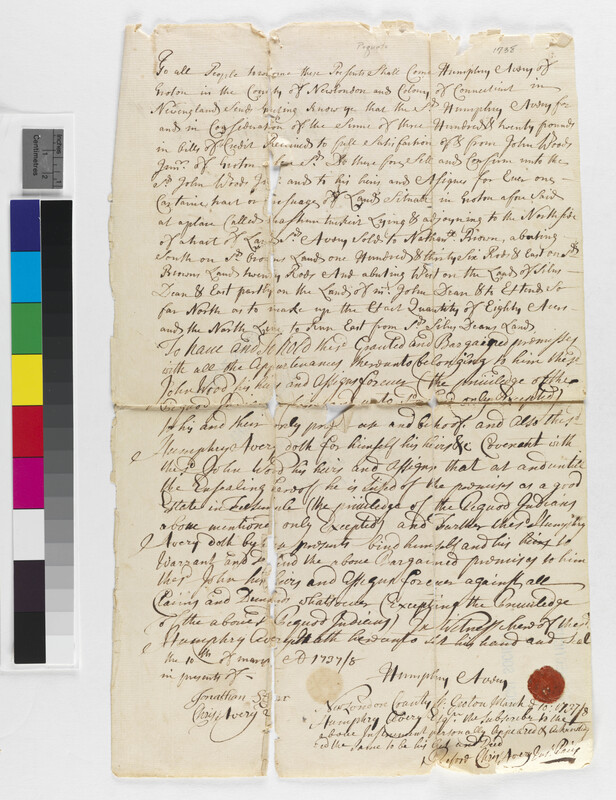 Pequots
1738
To all People to whome these Presents Shall Come Humphry Avery of
Groton in the County of New London and Colony of Connecticut in
Newengland Send Greeting Know ye that the sd Humphry Avery for
and in Consideration of the Sume of three Hundred & twenty pounds
in bills of Credit Received to full Satisfaction of & from John Woods
Junr. of Groton sd. Do therefore Sell and Confirm unto the
sd John Woods Junr and to his heirs and Assigns for Ever one
Certaine tract or messuage of Land Situate in Groton afore Said
at aplace Called Lying & adjoyning to the North side
of atract of Land sd Avery Sold to Nathanll Brown, abuting
South on sd browns Land one Hundred & thirty Six Rods & East on sd
Browns Land twenty Rods And abuting West on the Land of Silus
Dean & East partly on the Land of mr. John Dean & to Extend So
far North as to make up the Exact Quantity of Eighty Acres
and the North Line to Runn East from sd Silus Deans Land
To have and to hold these Granted and Bargained premisses
with all the Appurtenances thereunto belonging to him the sd
John Wood his heirs and Assigns forever (the priviledge of the
Pequod Indians sd Land only Excepted)
to his and their only use and behoof and also the sd
Humphry Avery doth for himself his heirs &c Covenant with
the sd John Wood his heirs and Assigns that at and untill
the Ensealing hereof he is Seised of the premises as a good
Estate in Feesimple (the priviledge of the Pequod Indians
above mentioned only Excepted) and further the sd Humphry
Avery doth by these presents bind himself and his heirs to
Warrant and defend the above Bargained premises to him
the sd John his heirs and Assigns forever against all
Claims and Demands whatsoever (Excepting the priviledge
of the above sd Pequod Indians) In Witness whereof the sd
Humphry Avery hath hereunto set his hand and Seal
the 10th of march AD 1737/8
in presents of
Humphry Avery
Jonathan
Chrisr Avery
New London County Ss. Groton March 10: 1737/8
Humphry Avery Esqr. the Subscriber to the
above Instrument personally Appeared & Acknowledg
ed the Same to be his Act and Deed
before Chrisr Avery Just Pacis
Centimetres
inches